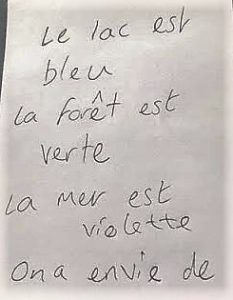 Le lac est
bleu
La forêt est
verte
La mer est
violette
On a envie de